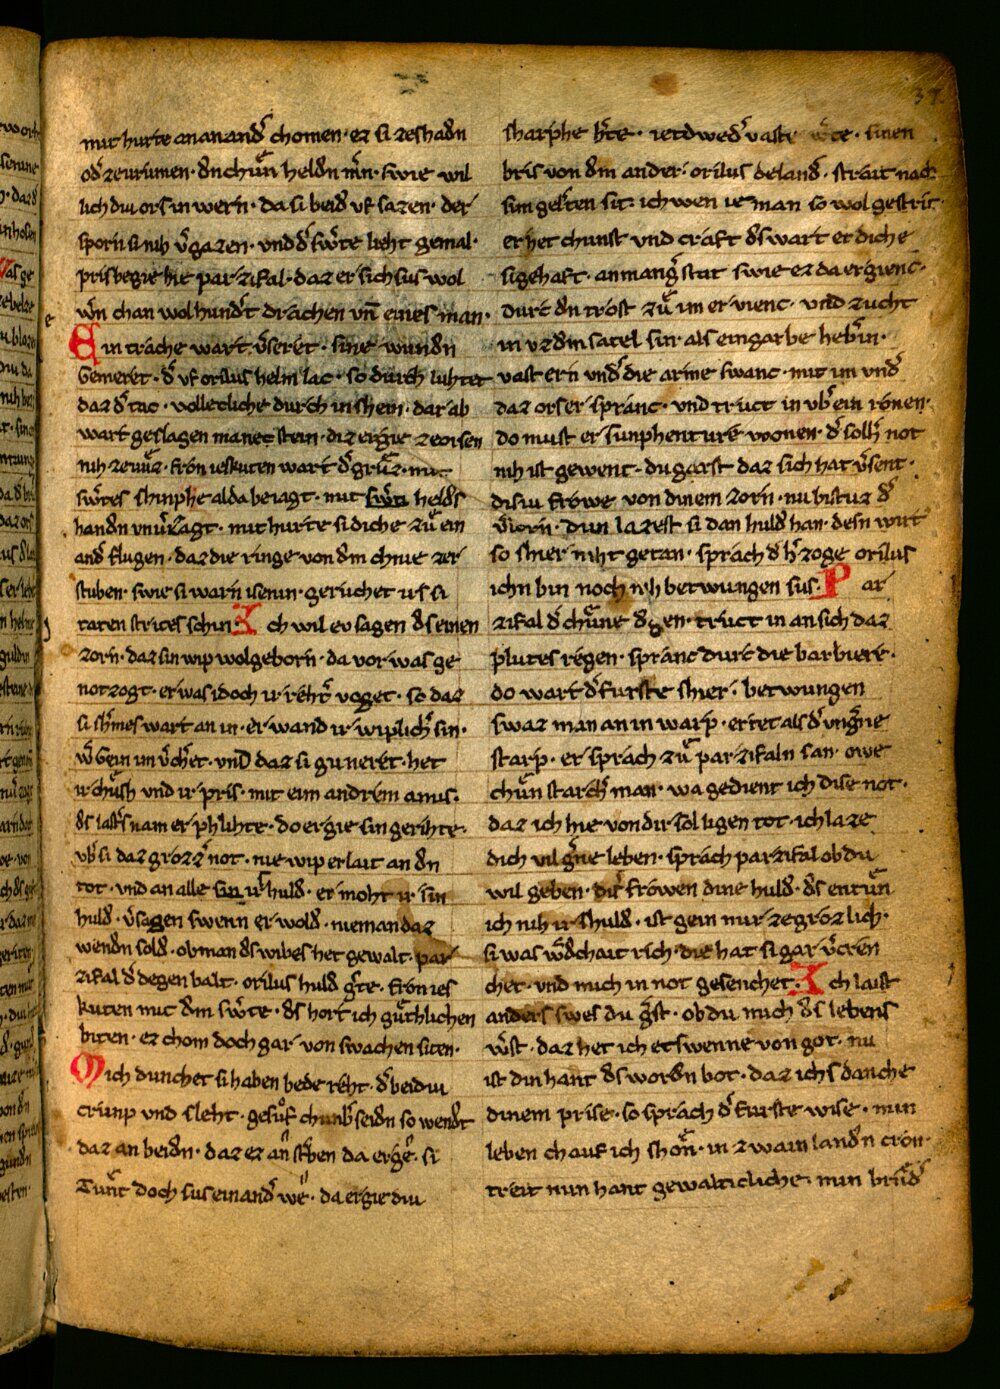 mit hurte an anandͤ chomen · ez si zeshadn
odͤ zevrumen · dn chuͤn heldn mͥn · swie wil
lich diu ors in wern · da si beidͤ vf sazen · der
sporn si nih v̾gazen · vnd dͤ sw̾te lieht gemal ·
pris begie hie parzifal · daz er sich sus wol
w̾n chan wol hundͤt drachen vn̄ eines man ·
Ein trache wart v̾seret · sine wundn
gemeret · dͤ vf orilus helm lac · so durch luhtec
daz dͤ tac · volleclliche durch in shein · dar ab
wart geslagen manec stein · diz ergie ze orsen
nih ze vuͤz · frön ieskuten wart dͤ gruͤz · mit
sw̾tes shinphe alda beiagt · mit sw̾tn heldͤs
handn vnv̾zagt · mit hurte si diche zuͤ ein
andͤ flugen · daz die ringe von dm chnie zer
stuben · swie si warn isenin · geruchet irs si
taten strites schin · Ich wil ev sagen ds einen
zorn · daz sin wip wolgeborn · da vor was ge
notzogt · er was idoch ir reht͛ voget · so daz
si sh͛mes wart an in · er wand ir wiplich͛ sin ·
w̾ gein im v̾ch͛et · vnd daz si guneret · het
ir chuͤsh vnd ir pris · mit eim andrem amis ·
ds last͛s nam er phlihte · do ergie sin gerihte ·
vb͛ si daz groz͛ not · nie wip erlait an dn
tot · vnd an alle sin ir͛ huld · er moht ir sin
huld · v̾sagen swenn er wold · nieman daz
wendn sold · ob man ds wibes het gewalt · par
zifal dͤ degen balt · orilus huld g͛te · frön ies
kuten mit dm sw̾te · ds hort ich guͤthlichen
biten · ez chom doch gar von swachen siten ·
Mich dunchet si haben bede reht · dͤ beidiu
crump vnd sleht · gesuͦf chunb͛ seidn so wendͤt
daz an beidn · daz ez an st͛ben da erge · si
Tunt doch sus einandͤ we · da ergie diu
sharphe h͛te · ietdwedͤ vaste w̾te · sinen
bris von dm ander · orilus delandͤ · strait nach
sim gel͛ten sit · ich wen ie man so wol gestrit ·
er het chunst vnd craft ds wart er diche
sigehaft · an mang͛ stat swie ez da ergienc ·
durc dn trost zuͤ im er vienc · vnd zucht
in vz dm satel sin · als ein garbe heb͛in ·
vast ern vndͤ die arme swanc · mit im vnd͛
daz orser spranc · vnd truct in vb͛ ein ronen ·
do must er sunphenture wonen · dͤ solh͛ not
nih ist gewent · du garst daz sich hat v̾sent ·
disiu frowe von dinem zorn · nu bistuz dͤ
v̾lorn · dun lazest si dan huld han · desn wirt
so shier niht getan · sprach dͤ h͛zoge orilus
ichn bin noch nih betwungen sus · Par
zifal dͤ chuͤne degen · truct in an sich daz
plutes regen · spranc durc die barbiere ·
do wart dͤ furste shier · betwungen
swaz man an in warp · er tet als dͤ vng͛ne
starp · er sprach zuͤ parzifaln san · owe
chuͤn starch͛ man · wa gedient ich dise not ·
daz ich hie von dir sol ligen tot · ich laze
dich vil g͛ne leben · sprach parzifal ob du
wil geben · dir͛ frowen dine huld · ds entuͤn
ich nih ir shuld · ist gein mir ze groz lich ·
si was w̾dchait rich · die hat si gar v̾cren
chet · vnd mich in not gesenchet · Ich laist
anders swes du g͛st · ob du mich ds lebens
w̾st · daz het ich etswenne von got · nu
ist din hant ds wordn bot · daz ichs danche
dinem prise · so sprach dͤ furste wise · min
leben chauf ich shon · in zwain landn cron ·
treit min hant gewalticliche · min brudͤ